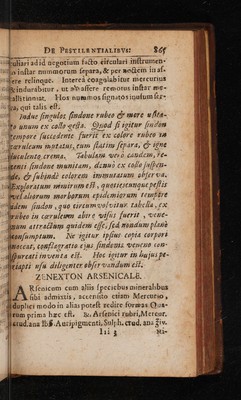 DE PESTILENTIALIBUS: 865
culiari ad id negotium facto circulari instrumen-
to instar nummorum separa, & per noctem in aë-
re relinque. Interea coagulabitur mercurius
& indurabitur, ut ab aëre remotus instar me-
talli tinniat. Hos nummos signatos in usum ser-
va, qui talis est.
Indue singulos sindone rubeo & more usita-
to unum ex collo gesta. Quod si igitur sindon
tempore succedente fuerit ex colore rubeo in
cæruleum mutatus, eum statim separa, & igne
luculento crema. Tabulam verò eandem, re-
centi sindone munitam, denuò ex collo suspen-
de, & subinde colorem immutatum observa.
Exploratum enim est, quotiescunque pestis
vel aliorum morborum epidemiorum tempore
idem sindon, quo circumvolvitur tabella, ex
rubeo in cæruleum abire visus fuerit, vene-
num attractum quidem esse, sed nondum planè
consumptum. Ne igitur ipsius cepta corpori
noceat, conflagratio ejus sindonis veneno con-
spurcati inventa est. Hoc igitur in hujus pe-
ntapti usu diligenter observandum est.
ZENEXTON ARSENICALE.
ARsenicum cum aliis speciebus mineralibus
sibi admixtis, accensito etiam Mercurio,
duplici modo in alias potest redire formas Qua-
rum prima hæc est. ℞. Arsenici rubri, Mercur.
crud. ana ℔ß. Auripigmenti, Sulph. crud. ana ℥iv.
Iii 3 Re-